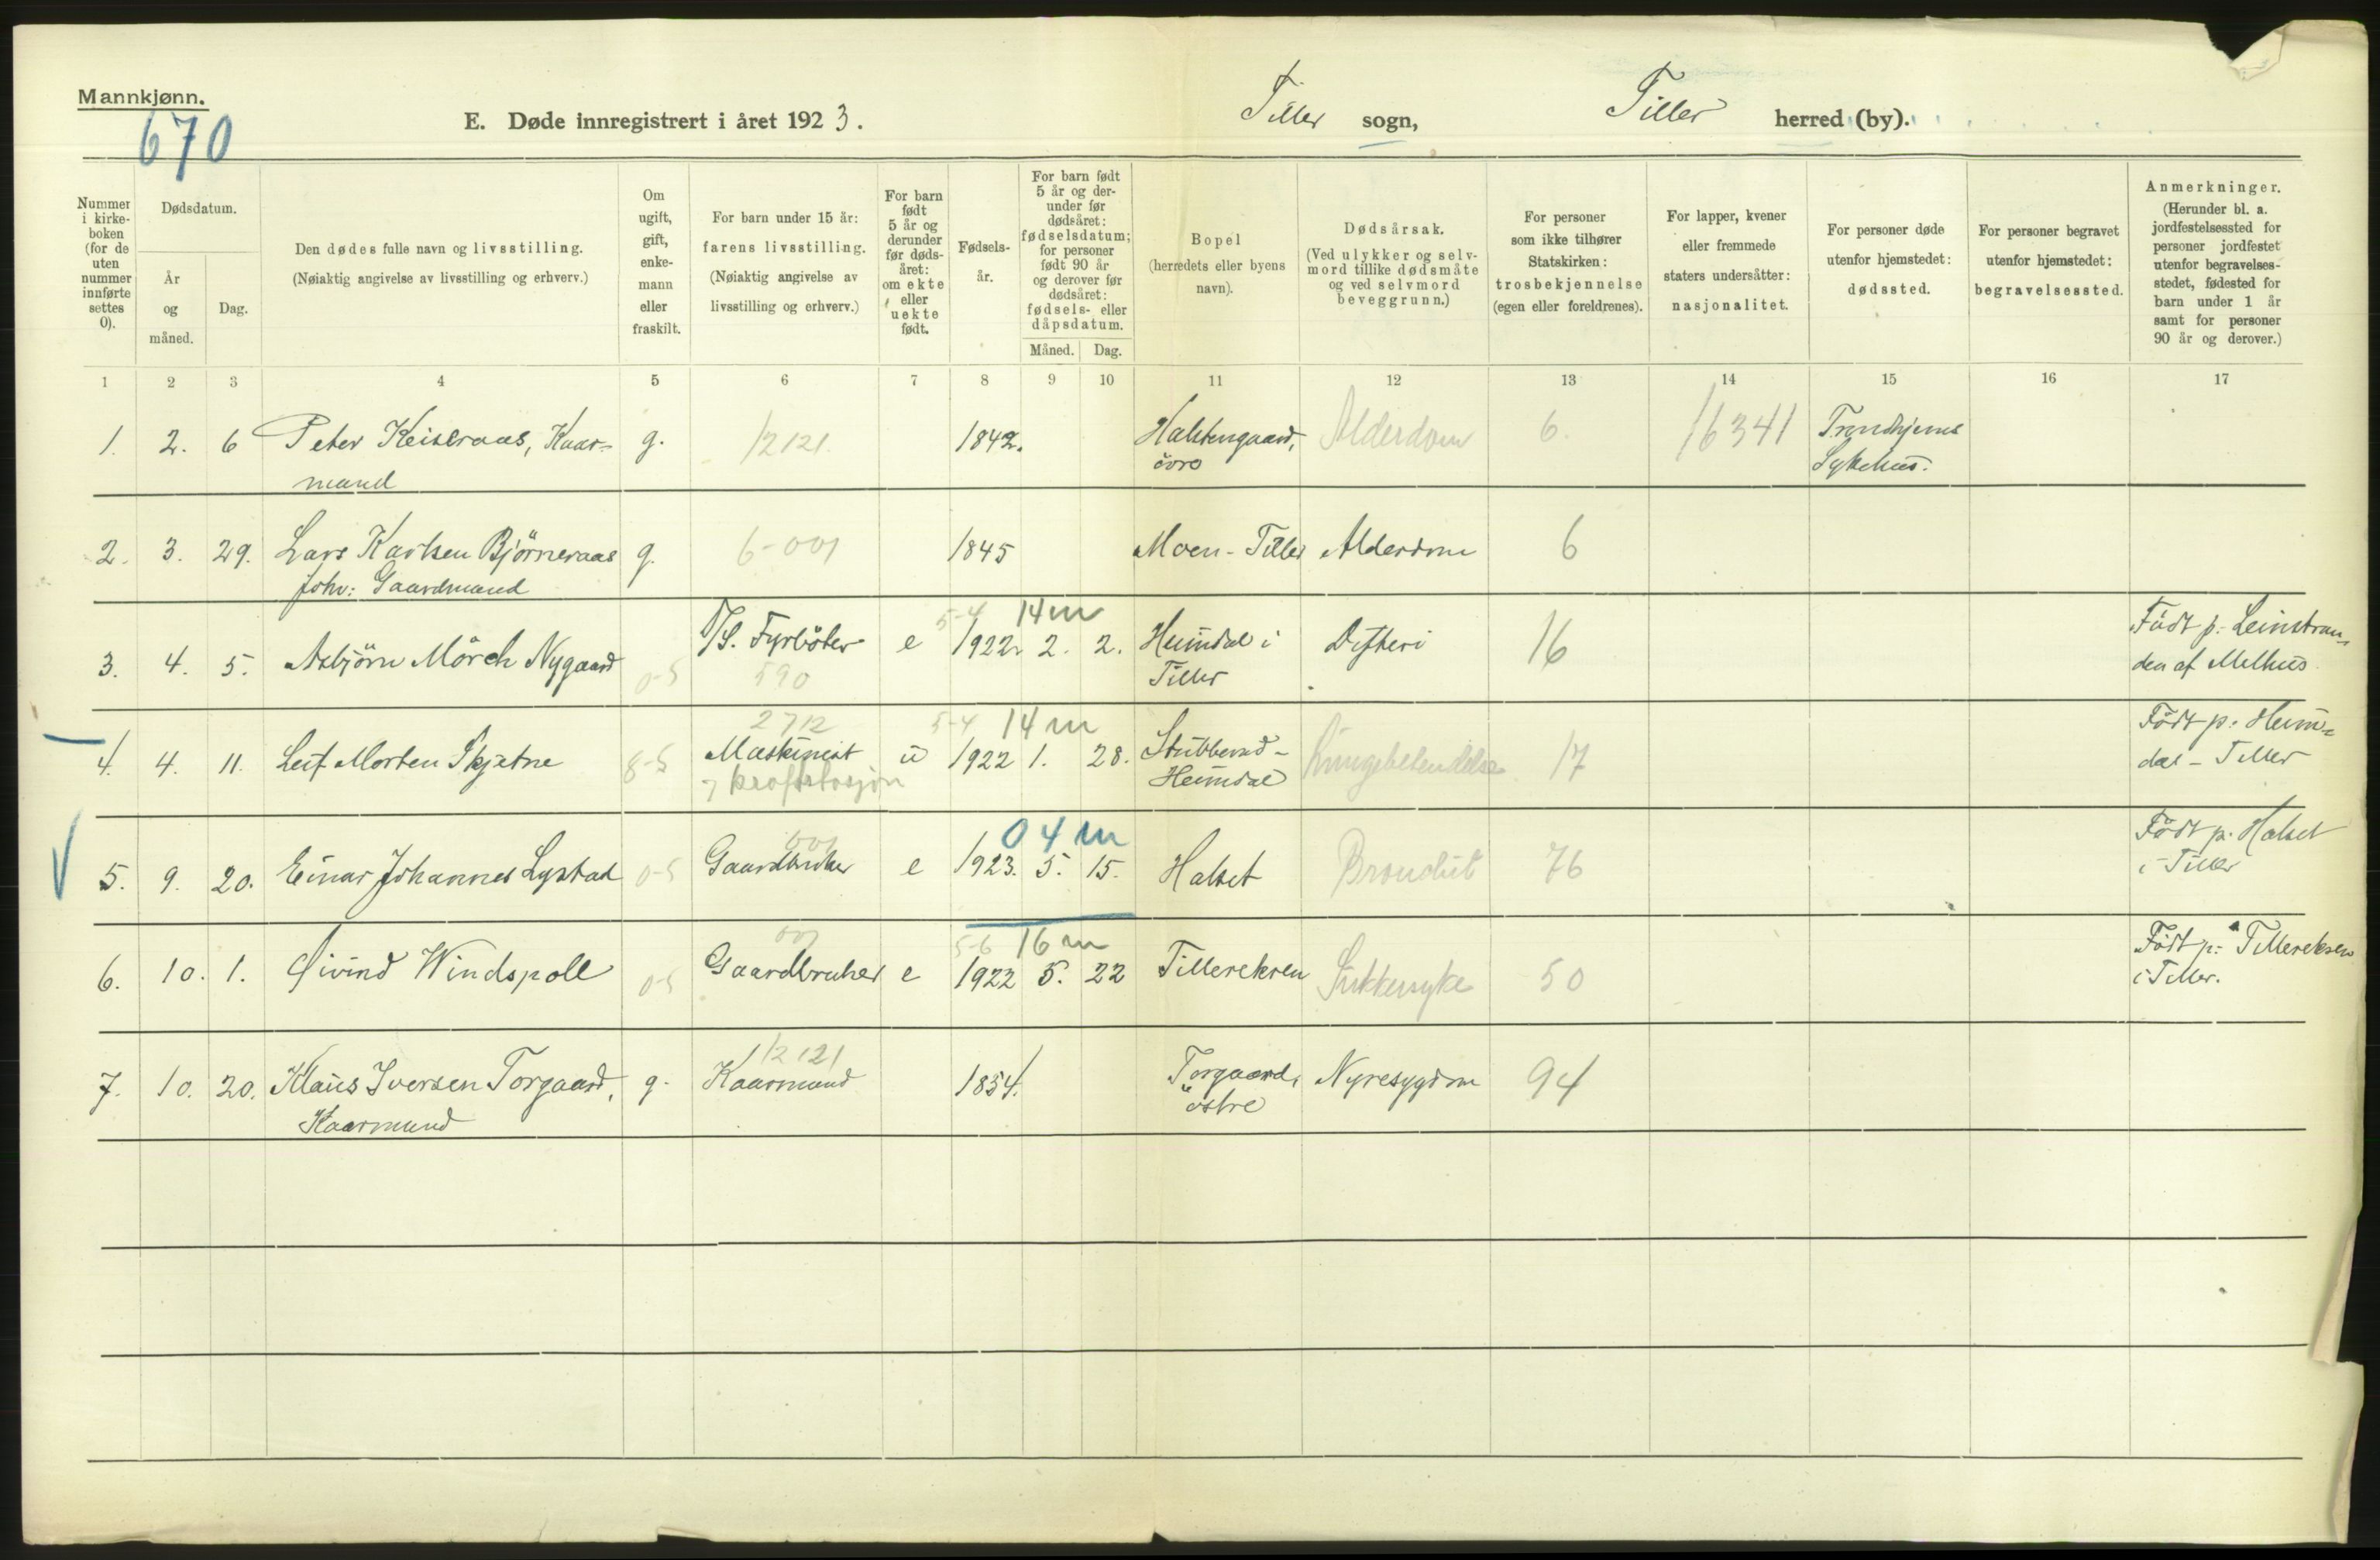 Mannkjønn.
670
E. Døde innregistrert i året 1923.
Tiller sogn,
Tiller herred (by).
Nummer i kirke-boken (for de uten nummer innførte settes 0).
Dødsdatum.
År og måned.
Dag.
Den dødes fulle navn og livsstilling.
(Nøiaktig angivelse av livsstilling og erhverv.)
Om ugift, gift, enke-mann eller fraskilt.
For barn under 15 år:
farens livsstilling.
(Nøiaktig angivelse av livsstilling og erhverv.)
For barn født 5 år og derunder før døds-året: om ekte eller uekte født.
Fødsels-år.
For barn født 5 år og der-under før dødsåret: fødselsdatum; for personer født 90 år og derover før dødsåret: fødsels- eller dåpsdatum.
Måned.
Dag.
Bopel
(herredets eller byens navn).
Dødsårsak.
(Ved ulykker og selv-mord tillike dødsmåte og ved selvmord beveggrunn.)
For personer som ikke tilhører Statskirken:
trosbekjennelse
(egen eller foreldrenes).
For lapper, kvener eller fremmede staters undersåtter:
nasjonalitet.
For personer døde utenfor hjemstedet:
dødssted.
For personer begravet utenfor hjemstedet:
begravelsessted.
Anmerkninger.
(Herunder bl. a. jordfestelsessted for personer jordfestet utenfor begravelses-stedet, fødested for barn under 1 år samt for personer 90 år og derover.)
1 2 3 4 5 6 7 8 9 10 11 12 13 14 15 16 17
1. 2. 6 Peter Keiseraas, Kaar- g. 12121. 1842. Halstengaard, Alderdom 6. 16341 Trondhjems
mand øvre Sykehus.
2. 3. 29. Lars Karlsen Bjørneraas g. 6-001 1845 Moen - Tiller Alderdom 6
forhv: Gaardmand
5-4 14 m
3. 4. 5. Asbjörn Mörch Nygaard 0-5 Fyrböter e 1922 2. 2. Heimdal i Difteri 16 Födt p. Leinstran-
590 Tiller den af Melhus.
2712 5-4 14 m
4. 4. 11. Leif Morten Skjetne 8-5 Maskinist u 1922 1. 28. Stubberud - Lungebetendelse 17 Födt p. Heim-
kraftstasjon Heimdal dal - Tiller
001 04 m
5. 9. 20. Einar Johannes Lystad 0-5 Gaardbruker e 1923. 5. 15. Halset 76 Födt p. Halset
i Tiller
001 5-6 16 m
6. 10. 1. Øivind Windspoll 0-5 Gaardbruker e 1922 5. 22 Tillereksen Sukkersyke 50 Födt p: Tillereksen
i Tiller.
12121
7. 10. 20. Klaus Iversen Torgaard, g. Kaarmand 1854. Torgaard, Nyresygdom 94
Kaarmand østre